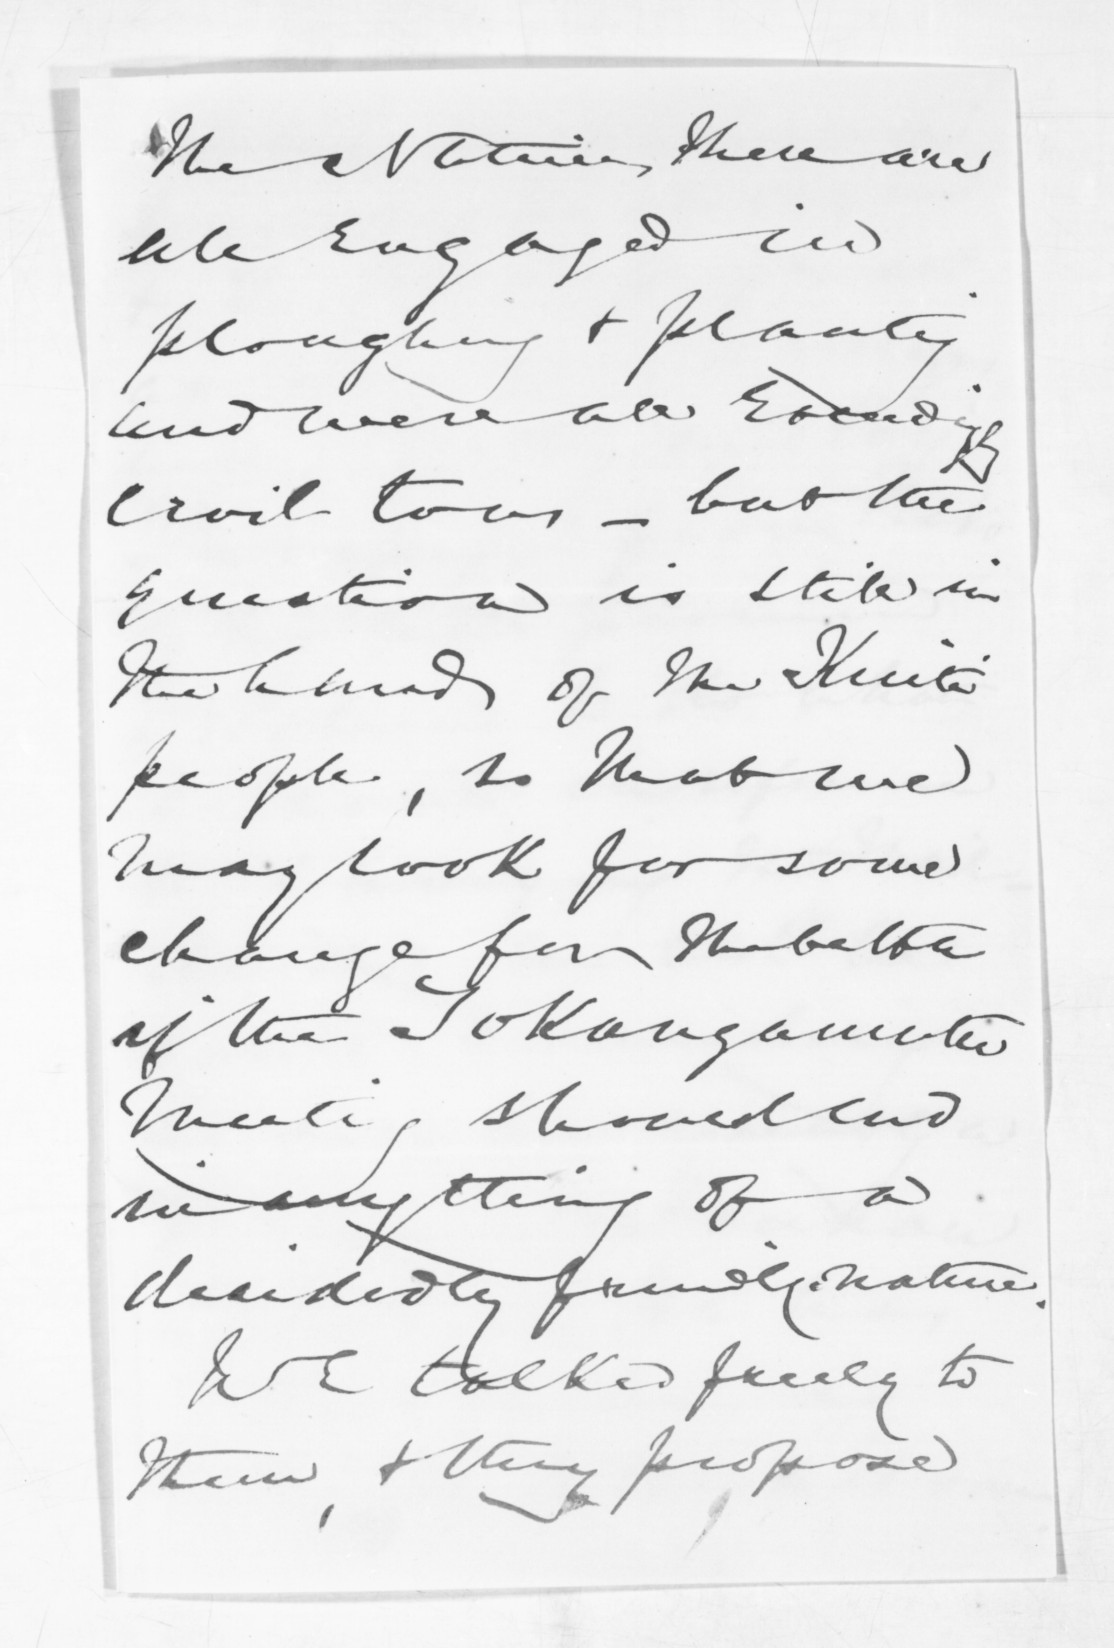 The Natives there are
all Engaged in
ploughing & planting
and were all Exceedingly
civil to us - but the
question is still in
the hands of the Kuiti
people, so that we
may look for some
change for the better
if the Tokangamutu
Meeting should end
in anything of a
decidedly friendly nature.
We talked freely to
them, & they propose